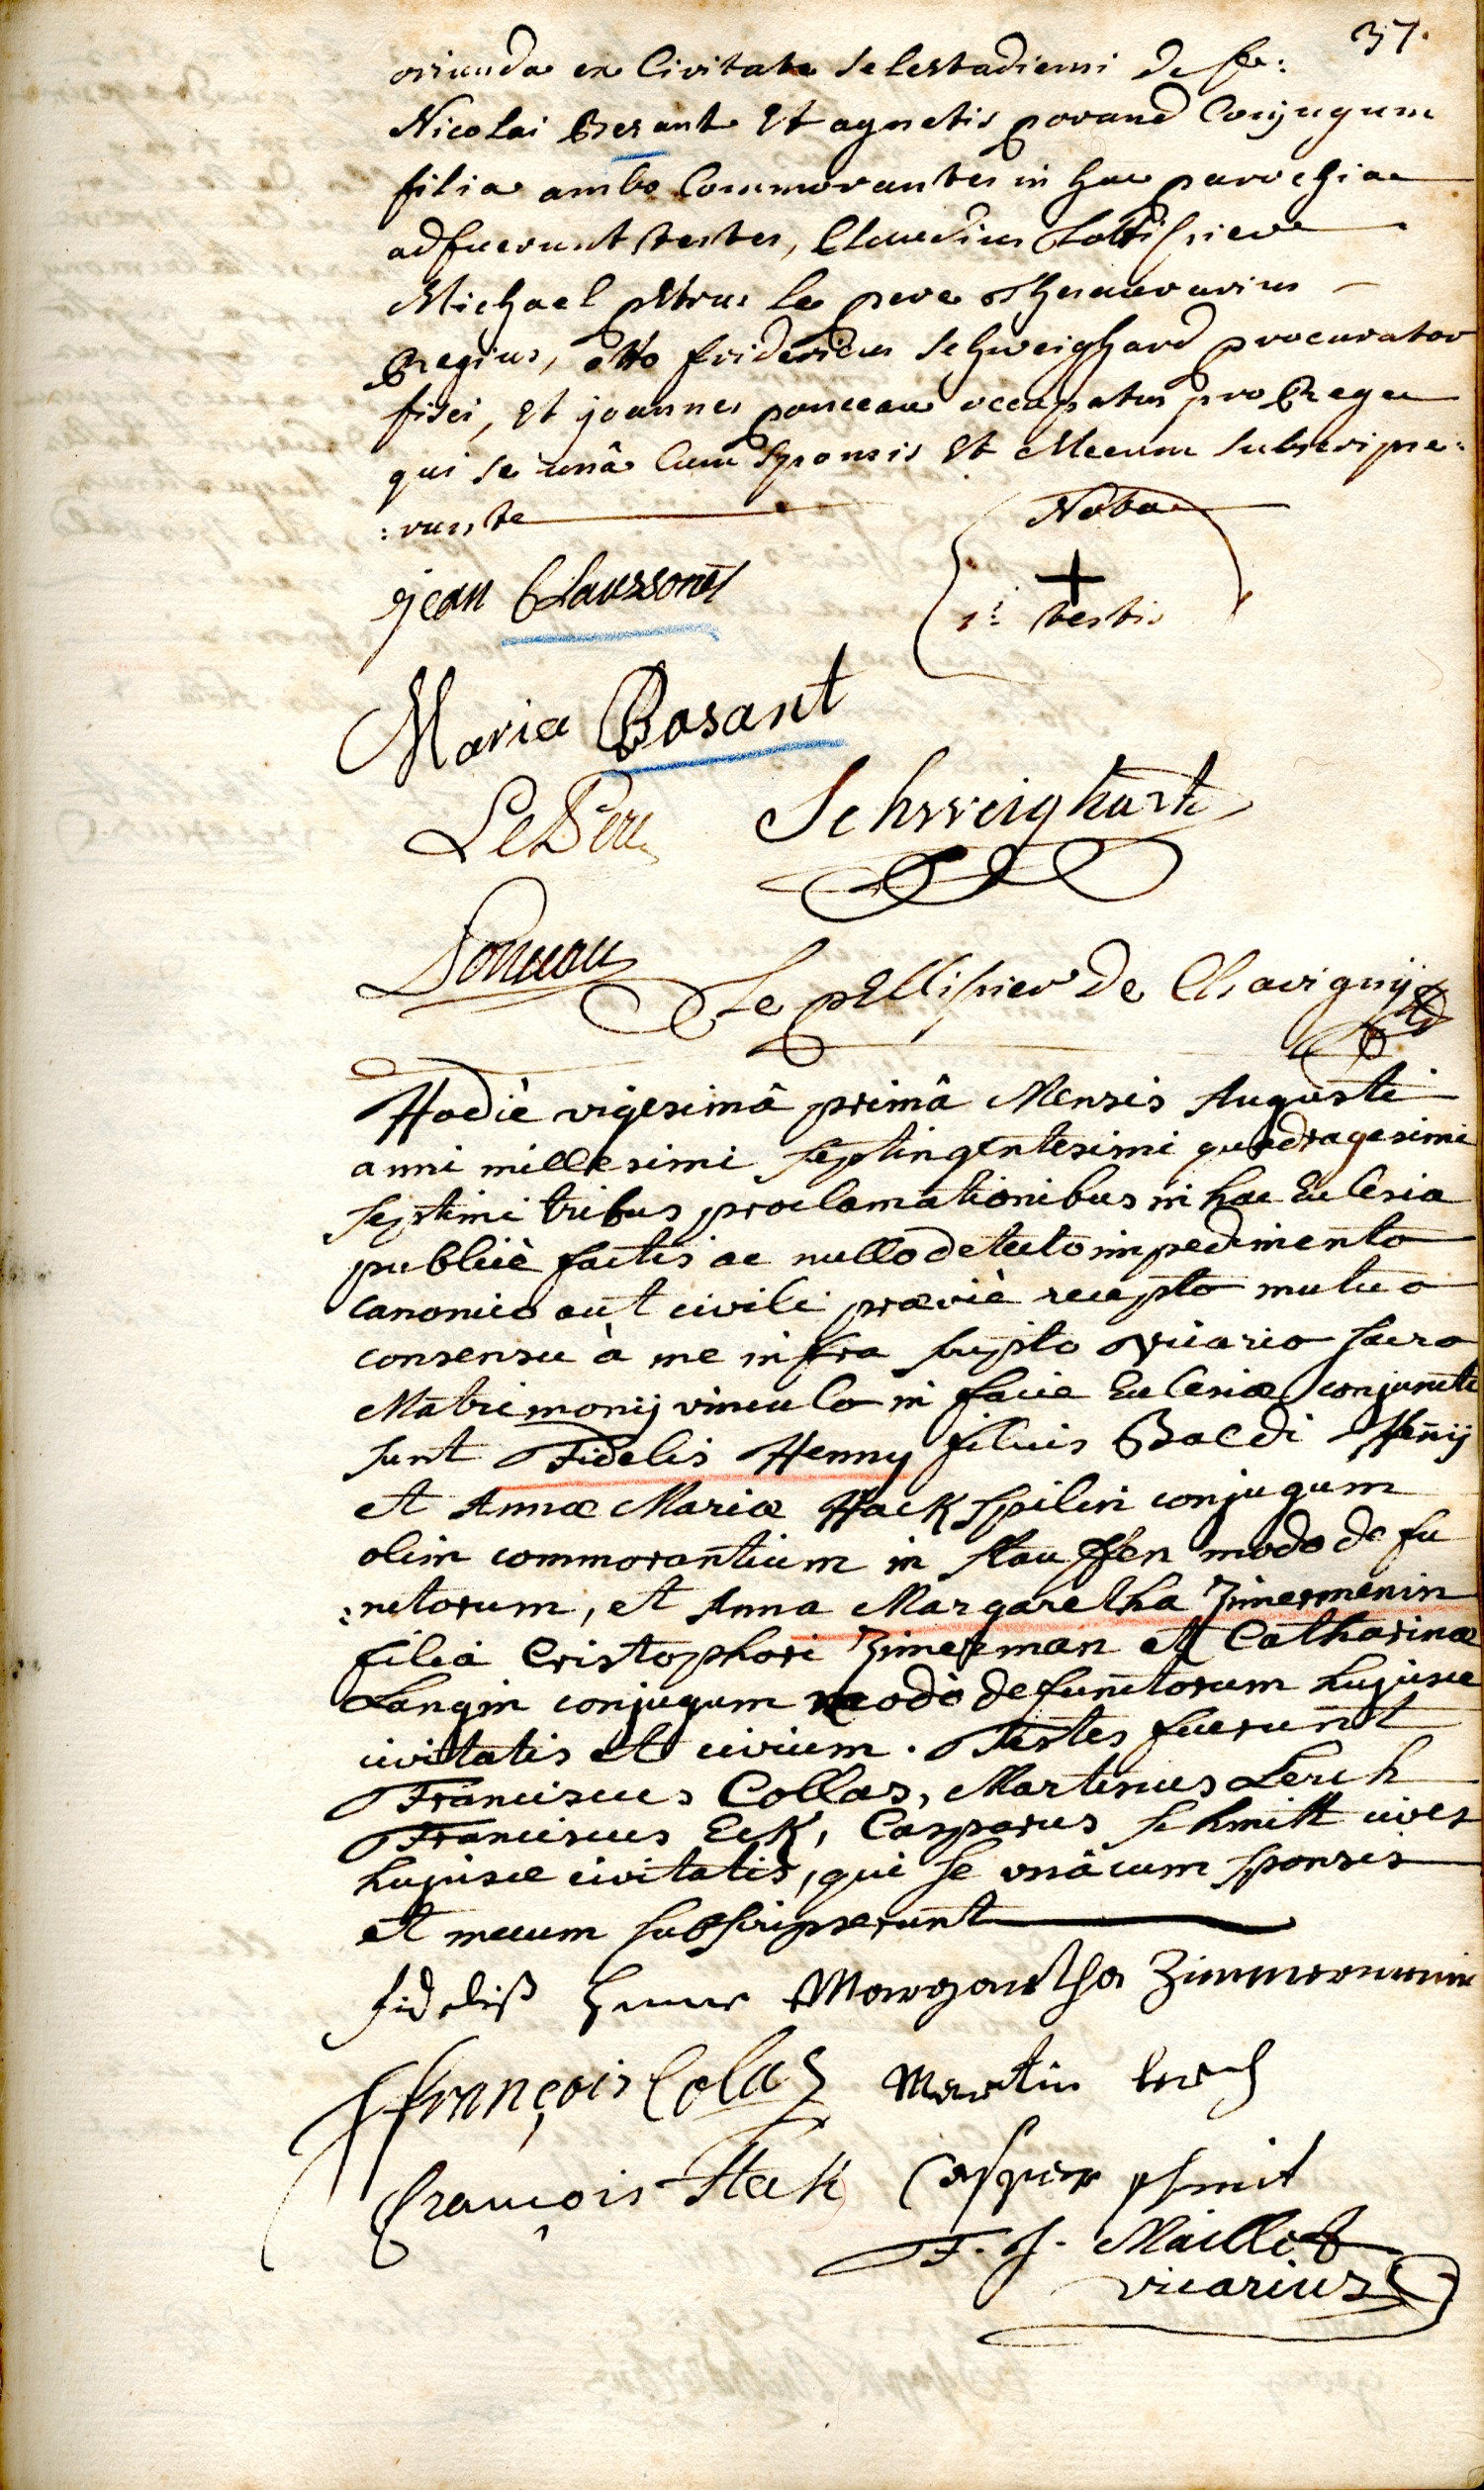 37.
oriunda ex Civitate Selestadiensi de fu:
Nicolai Besant Et agnetis porand Conjugum
filia ambo Commorantes in hac parochia
adfuerunt testes, Claudius
Michael petrus le pere Thesaurarius
Regius, otto fridericus Schweighard procurator
fisci, Et joannes ponceau occupatus pro Rege
qui se unâ Cum Sponsis Et Mecum subscripse:
:runt
Nota
+
1i testis
jean Claussones
Maria Bosant
Le Pere Schweighart
Ponceau
Le pellissier De Chavigny
Hodiè vigesimâ primâ Mensis Augusti
anni millesimi septingentesimi quadragesimi
septimi tribus proclamationibus in hac Eclesia
publicè factis ac nullo detecto impedimento
canonico aut civili praeviè recepto mutuo
consensu à me infra scripto vicario sacro
Matrimonij vinculo in facie Eclesiæ conjuncti
sunt Fidelis Henny filius Baldi Hen̄ij
et Annæ Mariæ Hackspilin conjugum
olim commorantium in stauffen modo defu
:nctorum, et Anna Margaretha Zimermenin
filia Cristophori Zimerman et Catharinæ
Langin conjugum modò defunctorum hujusce
civitatis et civium. Testes fuerunt
Franciscus Collas, Martinus Lerch
Franciscus Eck, Casparus schmitt cives
hujusce civitatis, qui se unâ cum sponsis
et mecum subscripserunt
fideliß Henne Margaretha Zimmermenin
françois Colas Martin Lerch
françois Hek Casper schmit
F. J. Maillet
vicarius